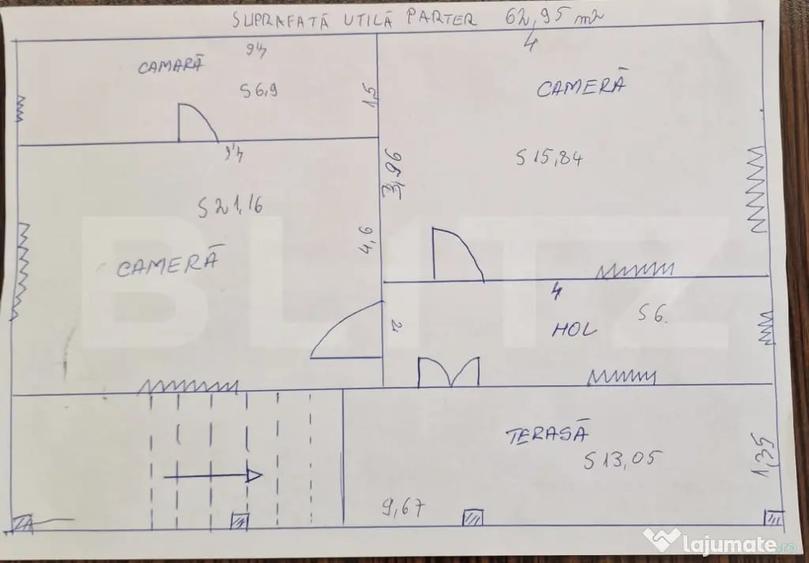 SUPRAFAȚĂ UTILĂ PARTER 62,95 m2
4,6
4
CAMARĂ
S6,9
1,5
CAMERĂ
S15,84
4,6
3,96
S21,16
4,6
CAMERĂ
4
2
HOL
S6.
TERASĂ
S13,05
1,35
9,67
BLITZ
lajumate.ro